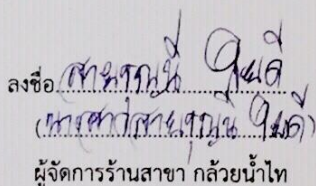 ลงชื่อ สายรุณี ใยดี
(นางสาวสายรุณี ใยดี)
ผู้จัดการร้านสาขา กล้วยน้ำไท